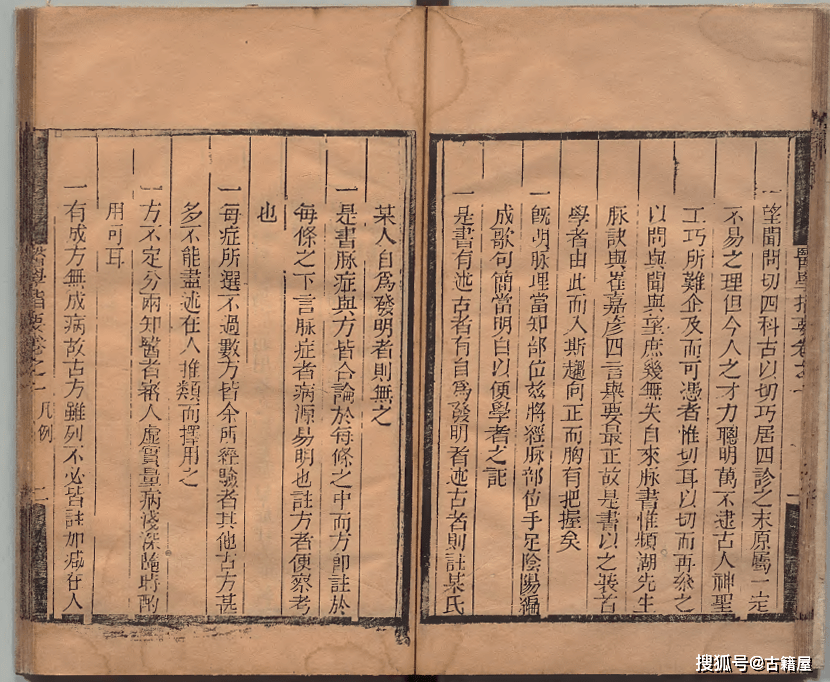 醫學指要卷之一
一望聞問切四科古以切巧居四診之末原屬一定
不易之理但今人之才力聰明萬不逮古人神聖
工巧所難企及而可憑者惟切耳以切而再叅之
以問與聞與望庶幾無失自來脉書惟頻湖先生
脉訣與崔嘉彥四言與要最正故是書以之裝首
學者由此而入斯趨向正而胸有把握矣
一旣明脉理當知部位兹將經脉部位手足陰陽編
成歌句簡當明白以便學者之記
一是書有述古者有自為發明者述古者則註某氏
某人自為發明者則無之
一是書脉症與方皆合論於每條之中而方卽註於
每條之下言脉症者病源易明也註方者便察考
也
一每症所選不過數方皆余所經驗者其他古方甚
多不能盡述在人推類而擇用之
一方不定分兩知醫者審人虛實量病淺深隨時酌
用可耳
一有成方無成病故古方雖列不必皆註加减在人
醫學指要卷之一 凡例 二
搜狐号@古籍屋